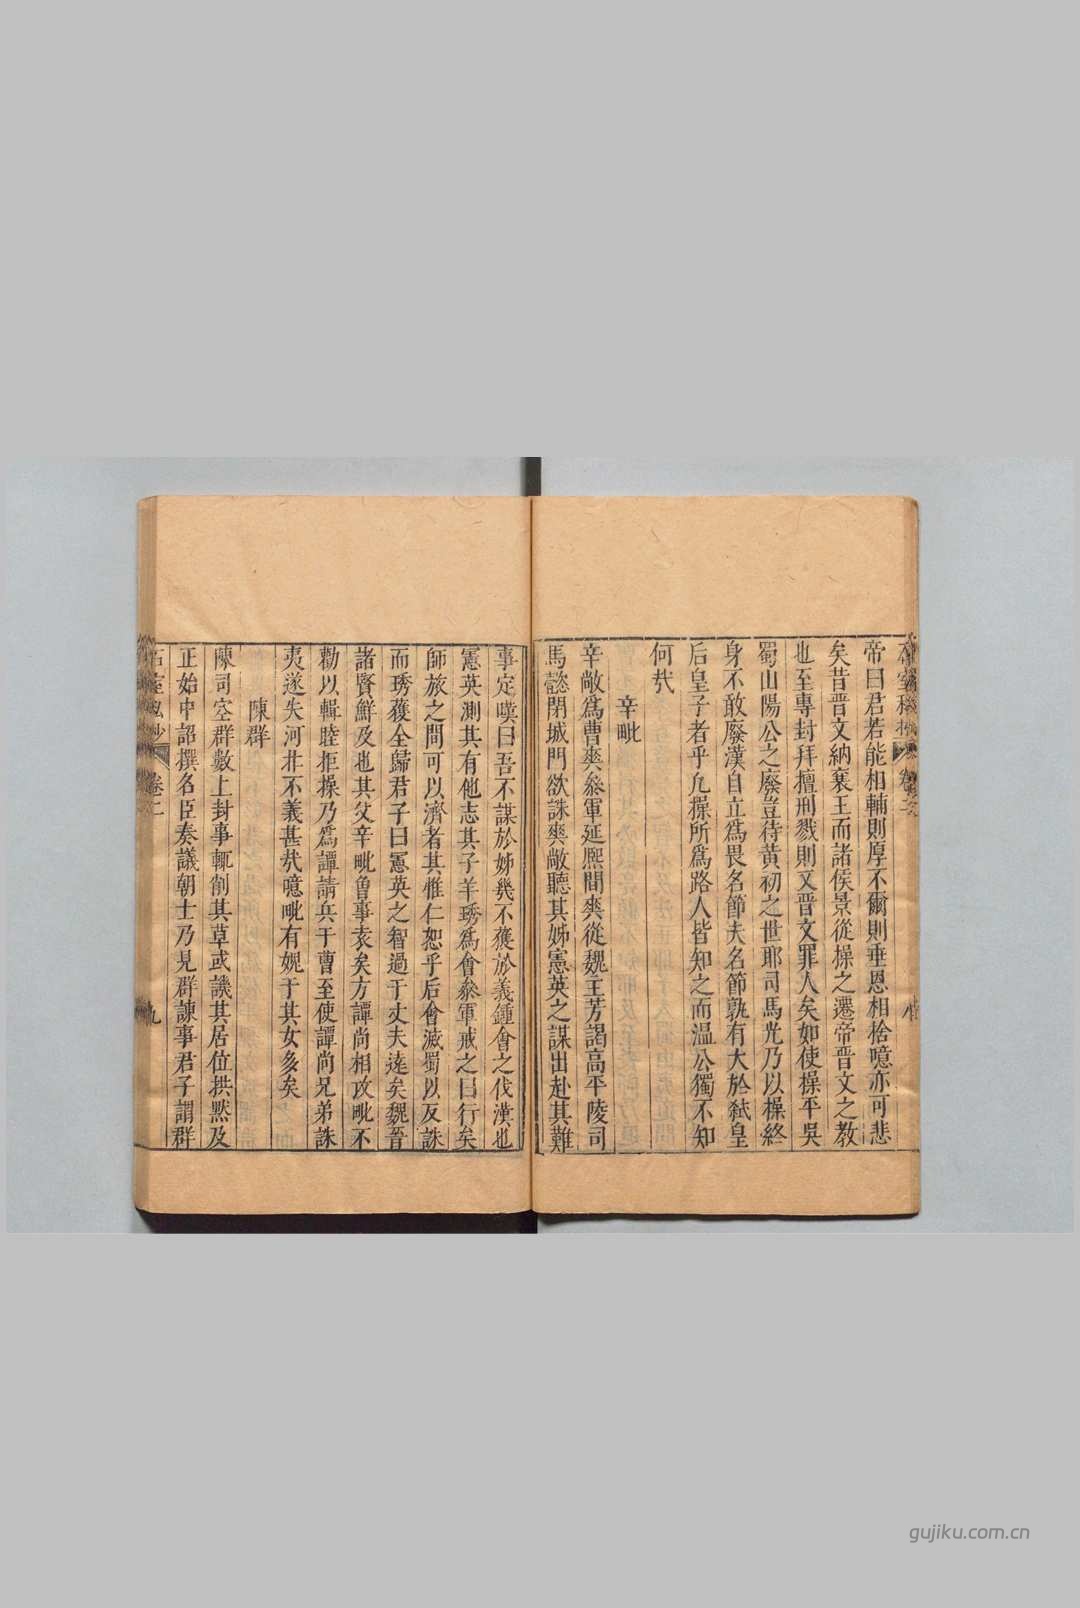 帝曰君若能相輔則厚不爾則垂恩相捨噫亦可悲
矣昔晋文納襄王而諸侯景從操之遷帝晋文之教
也至專封拜擅刑戮則又晋文罪人矣如使操平吳
蜀山陽公之廢豈待黃初之世耶司馬光乃以操終
身不敢廢漢自立爲畏名節夫名節孰有大於弑皇
后皇子者乎凢操所爲路人皆知之而温公獨不知
何㢤
辛毗
辛敞爲曹爽叅軍延熙間爽從魏主芳謁高平陵司
馬懿閉城門欲誅爽敞聽其姊憲英之謀出赴其難
事定嘆曰吾不謀於姊幾不獲於義鍾會之伐漢也
憲英測其有他志其子羊琇爲會叅軍戒之曰行矣
師旅之間可以濟者其惟仁恕乎后會滅蜀以反誅
而琇獲全歸君子曰憲英之智過于丈夫逺矣魏晉
諸賢鮮及也其父辛毗曾事袁矣方譚尚相攻毗不
勸以輯睦拒操乃爲譚請兵于曹至使譚尚兄弟誅
夷遂失河北不義甚㢤噫毗有媿于其女多矣
陳群
陳司空群數上封事輒削其草或譏其居位拱默及
正始中詔撰名臣奏議朝士乃見群諫事君子謂群
石室私抄
卷二
九
gujiku.com.cn